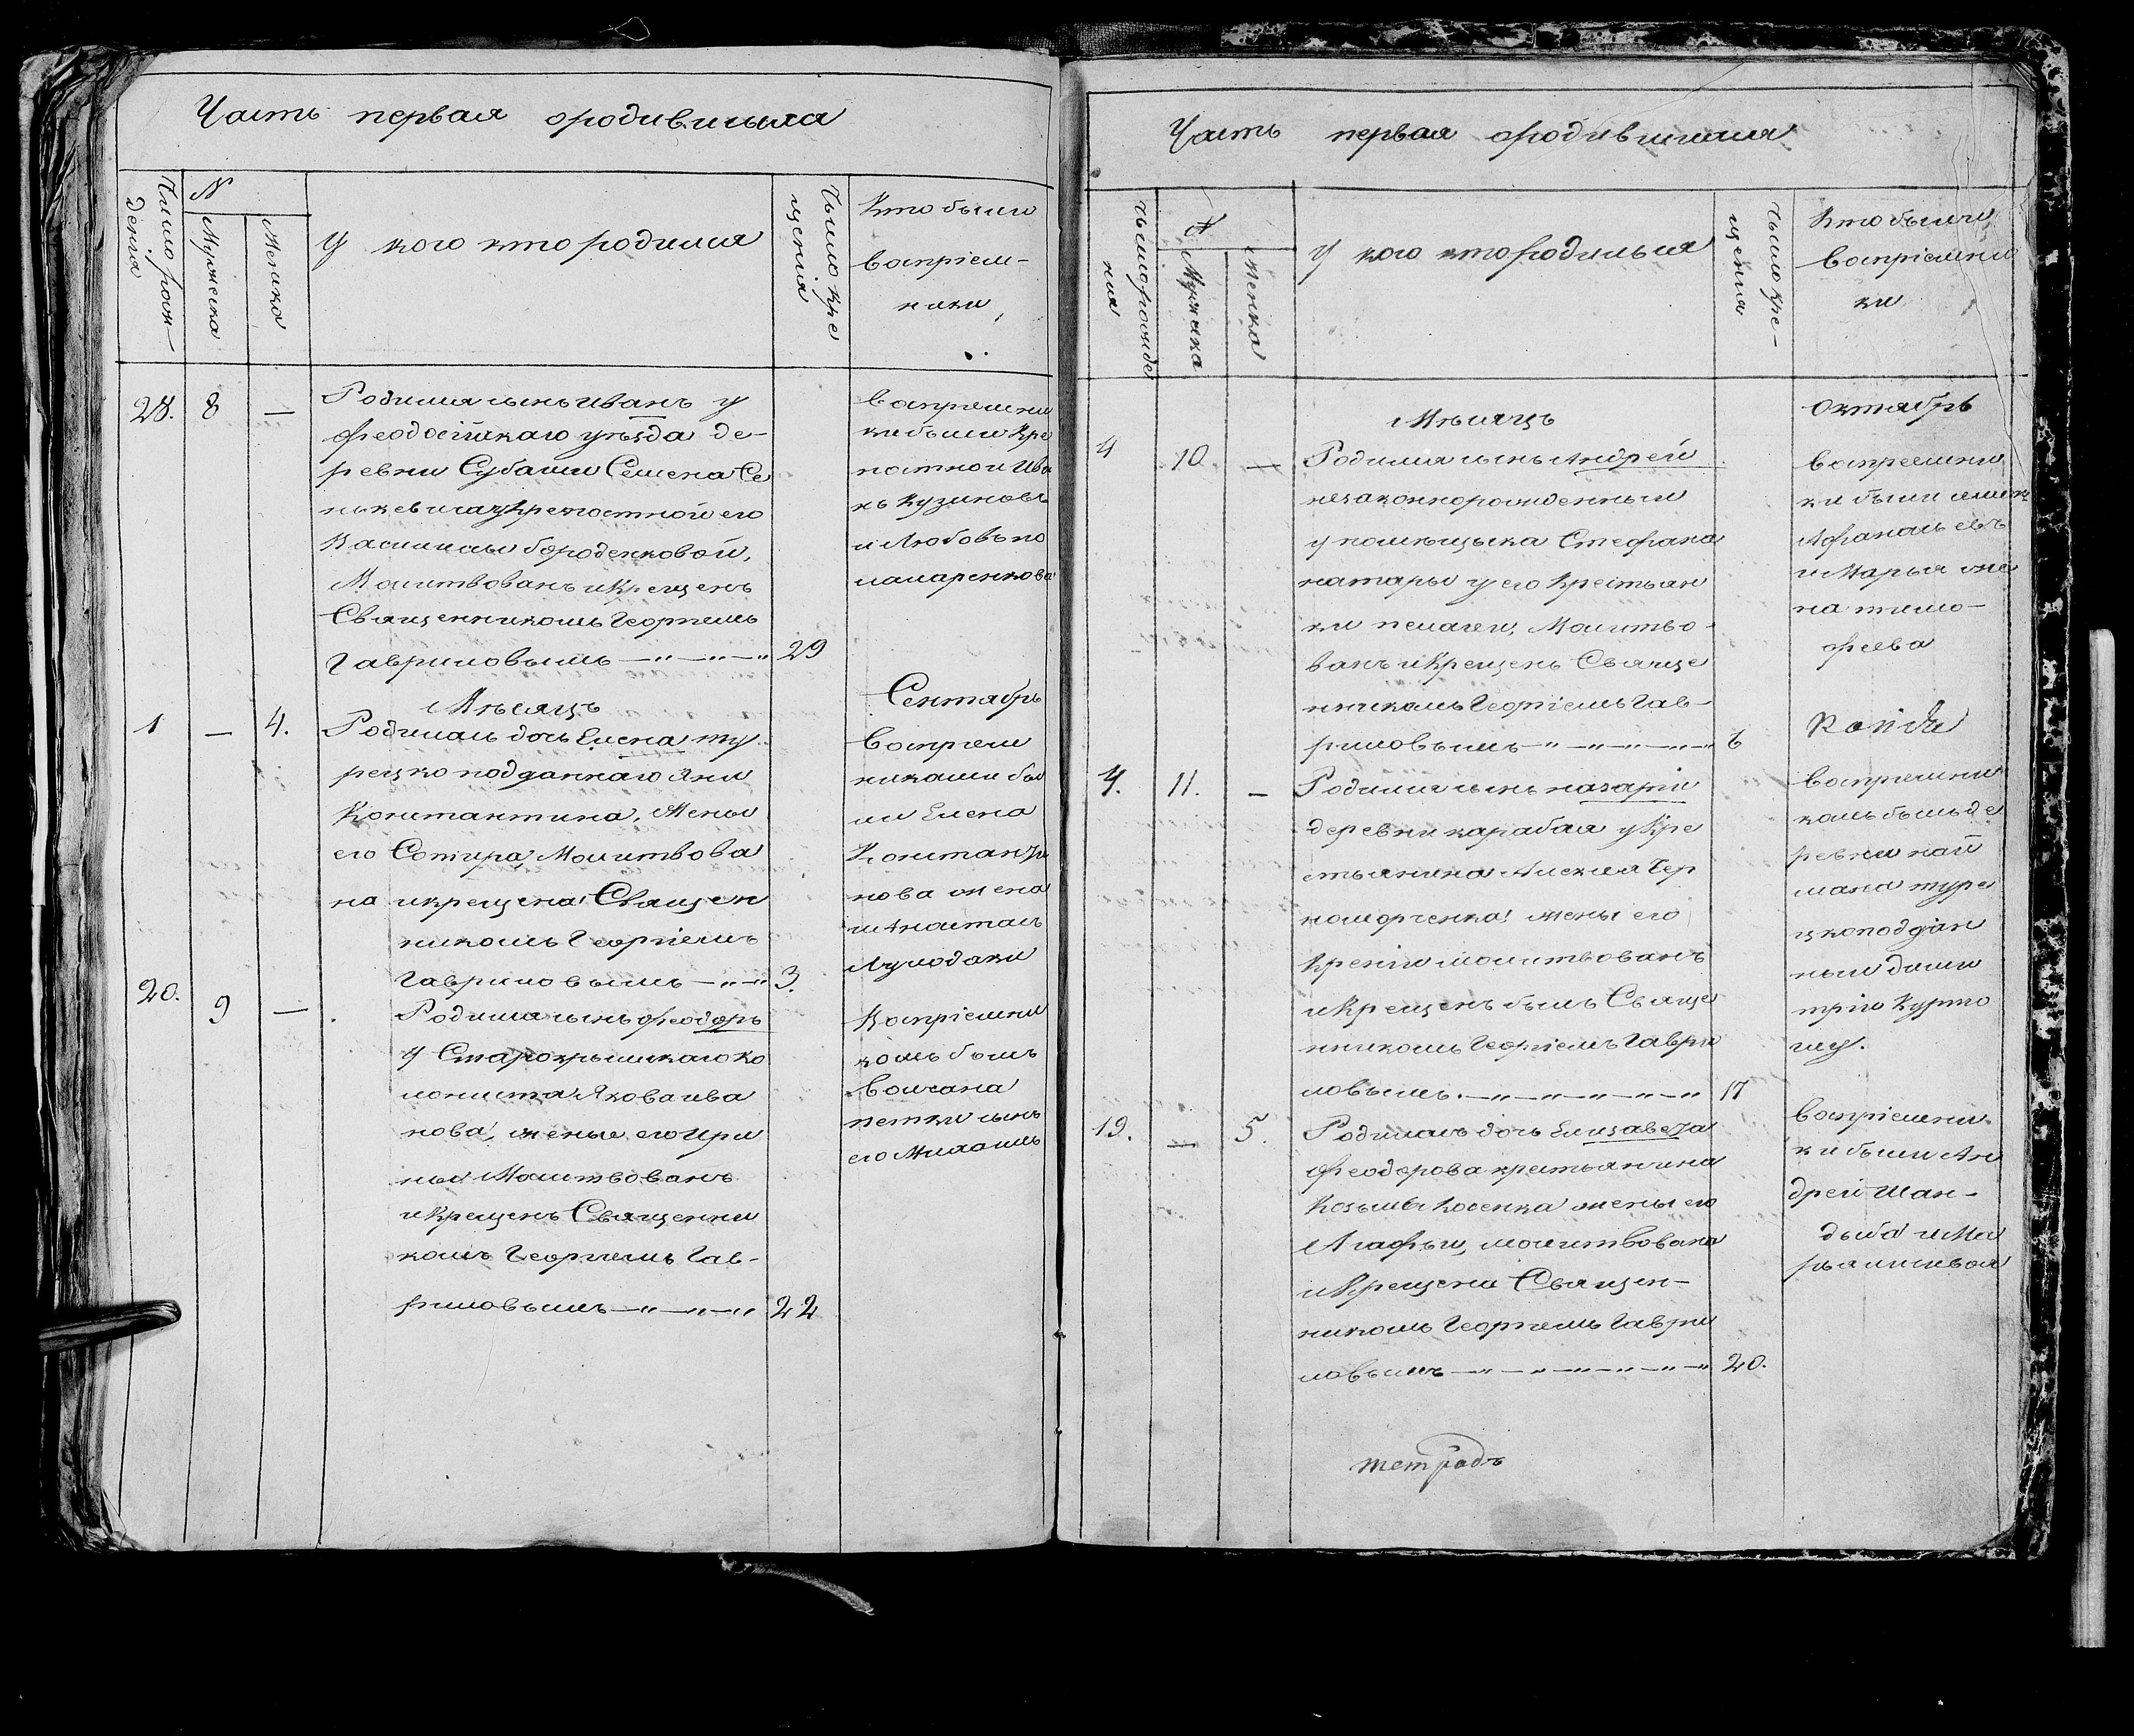 Часть первая ородившихся
Число рож-
денія
N
Мужеска
Женска
У кого кто родился
Число кре
щенія
Кто были
воспріем-
ники
28. 8 —
Родился сынъ Иванъ у
феодосійскаго уезда де-
ревни Субаши Семена Се
крепостной его
Василисы бороденковой,
Молитвованъ и Крещенъ
Священникомъ Георгіемъ
Гавриловымъ —"—"—" 29
воспреемни
ки были Кре
постной Ива
нъ Кузиновъ
и Любовь по
намаренкова
Мѣсяцъ
Сентябрь
1 — 4.
Родилась дочь Елена ту
рецко подданнаго Яни
Константина, Жены
его Сотира, Молитвова
на и крещена Священ
никомъ Георгіемъ
Гавриловымъ —"—" 3.
воспреем
никами бы
ли Елена
Констанди
нова жена
и Анастасъ
20. 9 —
Родился сынъ феодоръ
у Старокрымскаго ко
лониста Якова ива
нова, жены его Ири
ны Молитвованъ
и Крещенъ Священни
комъ Георгіемъ Гав-
риловымъ —"—"—" 22
Воспріемни
комъ былъ
Волчана
петки сынъ
его Михаилъ
Часть первая ородившихся
Число рожде
ния
N
Мужеска
женска
У кого кто родилься
Число кре-
щения
Кто были
Воспріемни
ки
Мѣсяцъ
Октябрь
4 10. —
Родился сынъ Андрей
незаконнорожденный
у помѣщыка Стефана
натары у его Крестьян
ки пелагеи, Молитво-
ванъ и Крещенъ Свяще
нникомъ Георгіемъ Гав-
риловымъ —"—"—"—"—" 6
воспреемни
ки были семенъ
Афанасьевъ
и Марья жена
на тимо-
феева
4. 11. —
Родился сынъ назарій
деревни карабая у Кре
стьянина Алексея Чер
номорченка жены его
Молитвованъ
и Крещенъ былъ Свяще
нникомъ Георгіемъ Гаври
ловымъ. —"—"—"—"—" 17
воспреемни
комъ былъ де
ревни кай
мана туре
цкоподдан
ный дими
трій Курто
глу.
19. — 5.
Родилась дочь Елизавета
феодорова крестьянина
Козьмы Косенка жены его
Агафьи, молитвована
и Крещена Священ-
никомъ Георгіемъ Гаври
ловымъ —"—"—"—"—"—" 20.
воспріемни
ки были Ан
дрей Шан-
дыба и Ма
рья
тетрадь